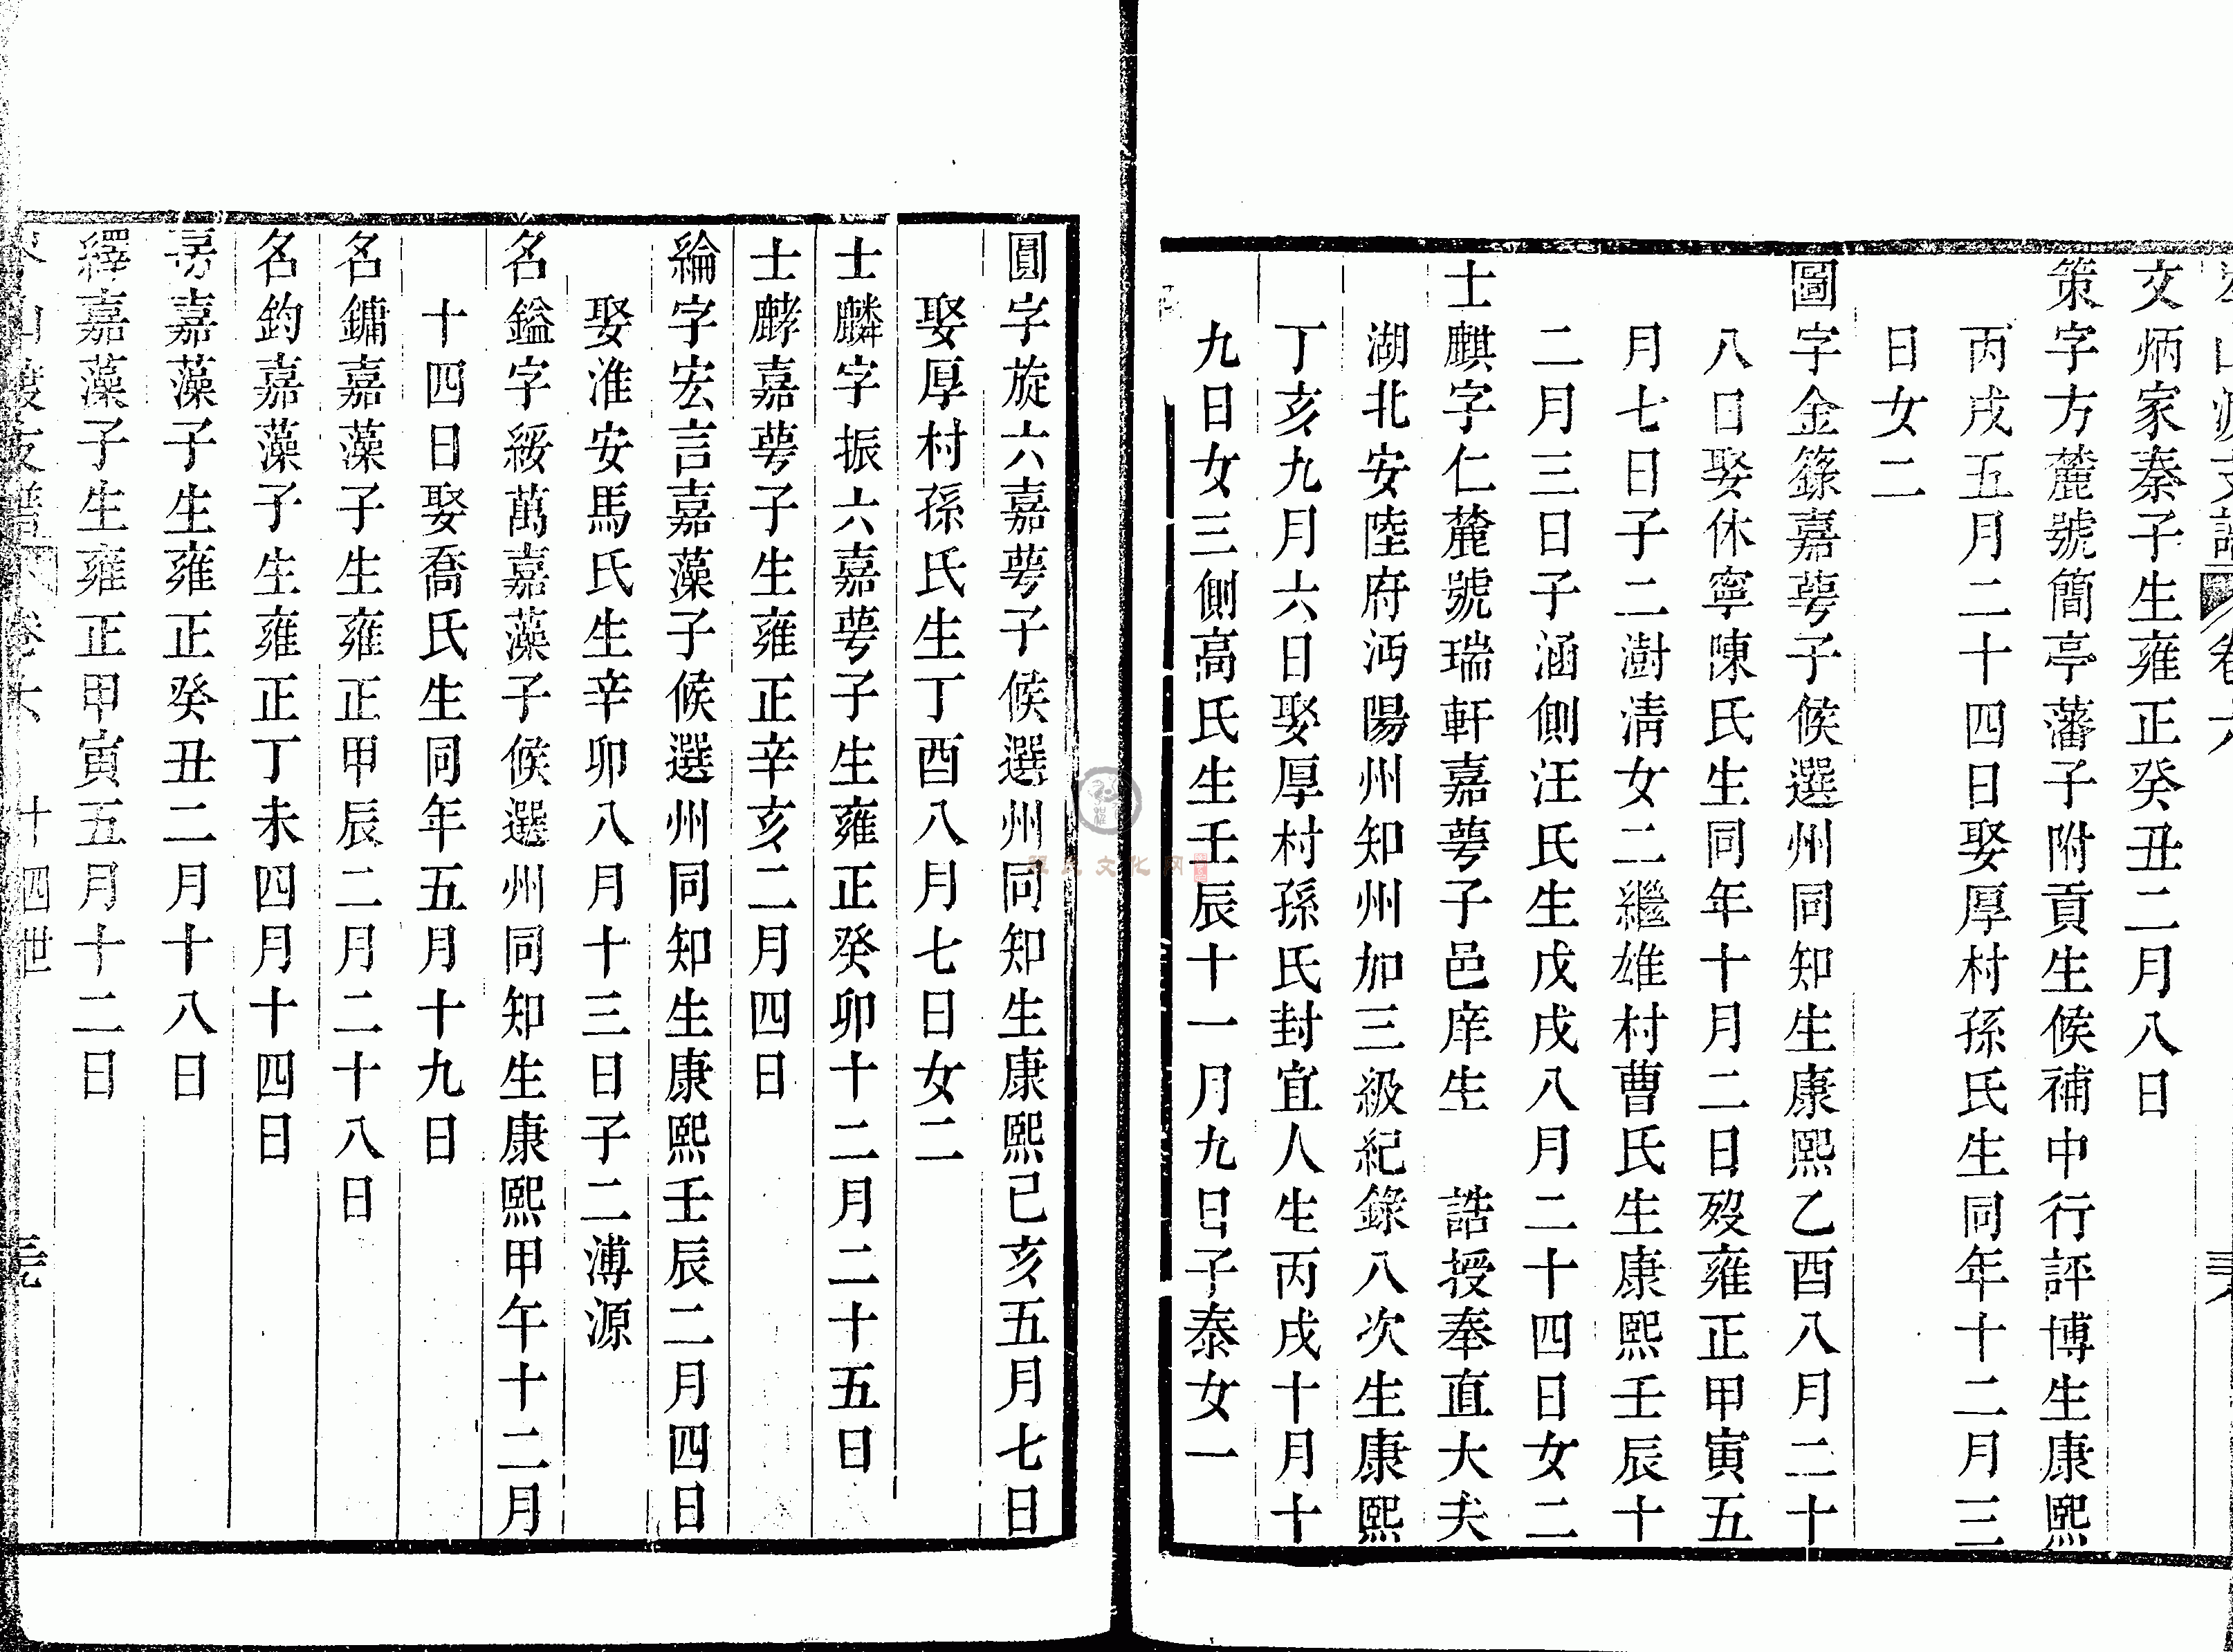 山渡支譜 卷六
文炳家泰子生雍正癸丑二月八日
策字方麓號簡亭藩子附貢生候補中行評博生康熙
丙戌五月二十四日娶厚村孫氏生同年十二月三
日女二
圖字金籙嘉萼子候選州同知生康熙乙酉八月二十
八日娶休寧陳氏生同年十月二日歿雍正甲寅五
月七日子二澍淸女二繼雄村曹氏生康熙壬辰十
二月三日子涵側汪氏生戊戌八月二十四日女二
士麒字仁麓號瑞軒嘉萼子邑庠生 誥授奉直大夫
湖北安陸府沔陽州知州加三級紀錄八次生康熙
丁亥九月六日娶厚村孫氏封宜人生丙戌十月十
九日女三側高氏生壬辰十一月九日子泰女一
圓字旋六嘉萼子候選州同知生康熙己亥五月七日
娶厚村孫氏生丁酉八月七日女二
士麟字振六嘉萼子生雍正癸卯十二月二十五日
士麰嘉萼子生雍正辛亥二月四日
綸字宏言嘉藻子候選州同知生康熙壬辰二月四日
娶淮安馬氏生辛卯八月十三日子二溥源
名鎰字綏萬嘉藻子候選州同知生康熙甲午十二月
十四日娶喬氏生同年五月十九日
名鏞嘉藻子生雍正甲辰二月二十八日
名鈞嘉藻子生雍正丁未四月十四日
嘉藻子生雍正癸丑二月十八日
繹嘉藻子生雍正甲寅五月十二日
山渡支譜 卷六 十四世